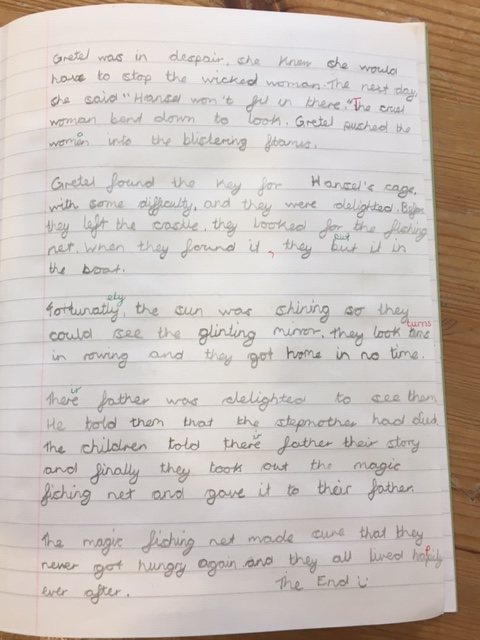 Gretel was in despair, she knew she would
have to stop the wicked woman. The next day,
she said "Hansel won't fit in there." The cruel
woman bend down to look. Gretel pushed the
woman into the blistering flames.
Gretel found the key for Hansel's cage,
with some difficulty, and they were delighted. Before
they left the castle, they looked for the fishing
net. When they found it, they but put it in
the boat.
Fortunatly ely, the sun was shining so they
could see the glinting mirror. They look turns
in rowing and they got home in no time.
There ir father was delighted to see them.
He told them that the stepmother had died.
The children told there ir father their story
and finally they took out the magic
fishing net and gave it to their father.
The magic fishing net made sure that they
never got hungry again and they all lived happily
ever after. The End :)